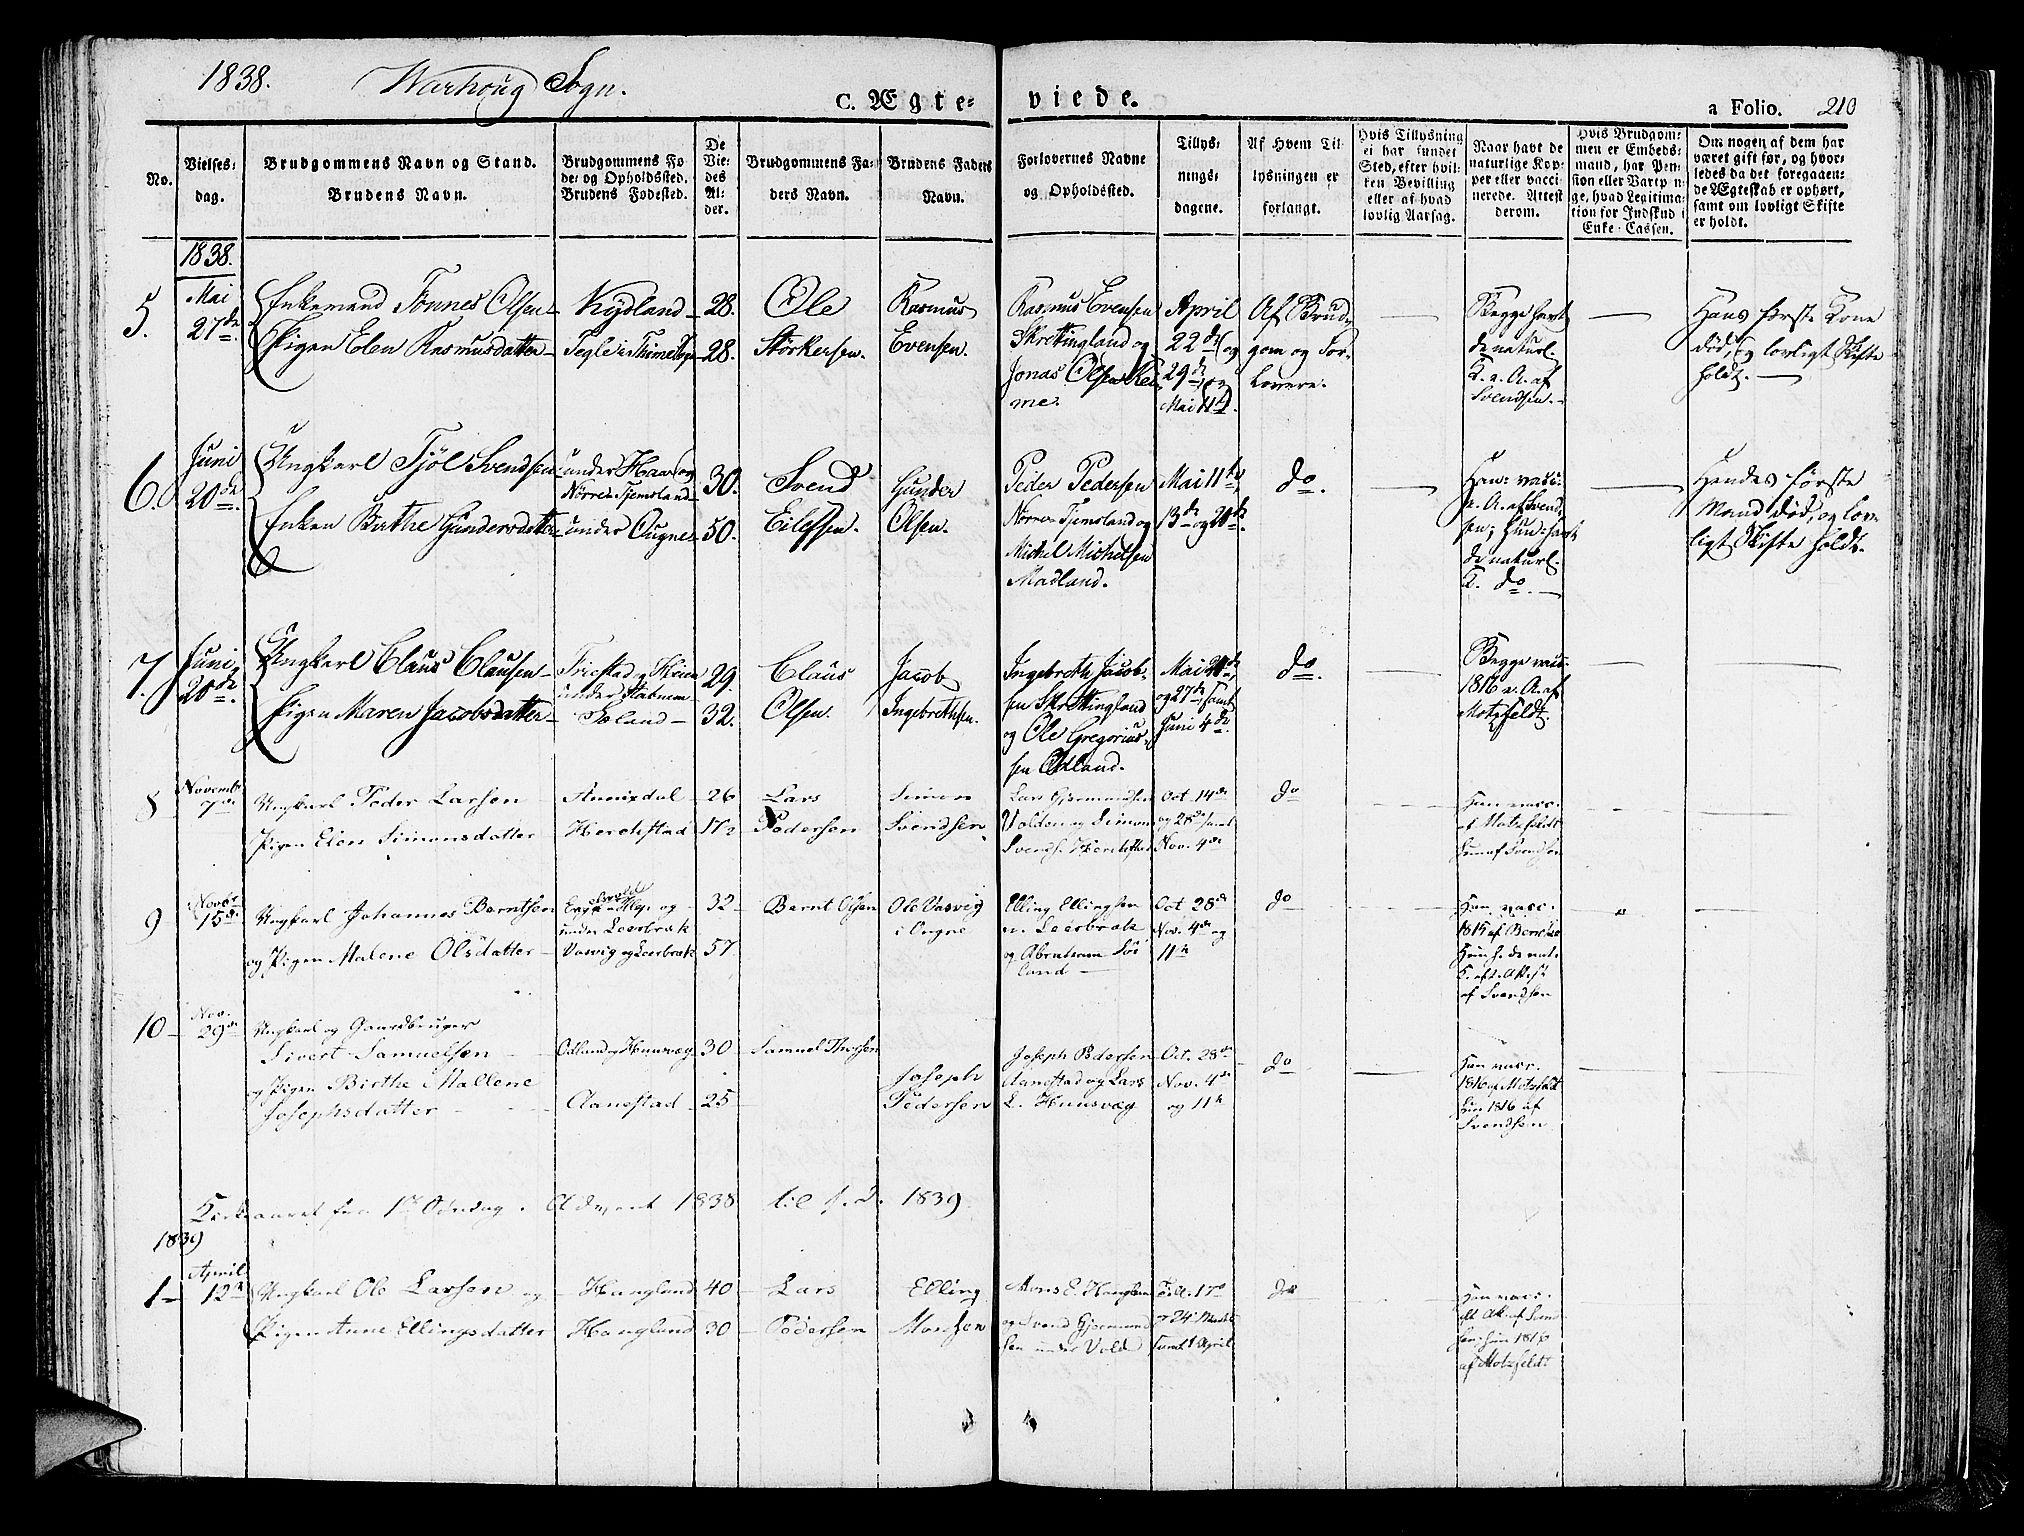 1838. Warhoug Sogn.
C. Ægteviede.
a Folio. 210
No.
Vielsesdag.
Brudgommens Navn og Stand.
Brudens Navn.
Brudgommens Føde- og Opholdssted.
Brudens Fødested.
De Viedes Alder.
Brudgommens Faders Navn.
Brudens Faders Navn.
Forlovernes Navne
og Opholdssted.
Tillysningsdagene.
Af Hvem Tillysningen er forlangt.
Hvis Tillysning ei har fundet Sted, efter hvilken Bevilling eller af hvad lovlig Aarsag.
Naar havt de naturlige Kopper eller vaccinerede. Attest derom.
Hvis Brudgommen er Embedsmand, har Pension eller Vartpenge, hvad Legitimation for Indskud i Enke-Cassen.
Om nogen af dem har været gift før, og hvorledes da det foregaaende Ægteskab er ophørt, samt om lovligt Skifte er holdt.
1838.
5. Mai 27de
Enkemand Tönnes Olsen – Kydland – 28. Ole Störkersen.
Pigen Elen Rasmusdatter – 28. Rasmus Evensen.
Rasmus Evensen
Skretingland og
Jonas Olsen Reime.
April 22de og 29de, og Mai 11te.
Af Brudgom og Forlovere.
Begge havt de naturl. K. e. A. af Svendsen.
Hans første Kone død, og lovligt Skifte holdt.
6. Juni 20de
Ungkarl Tjöl Svendsen – under Haar og Nörre Tjemsland – 30. Svend
Enken Birthe Gundersdatter – under Ougne – 50. Gunder Olsen.
Peder Pedersen
Nörre Tjemsland og
Michel Michelsen
Madland.
Mai 11te, 13de og 20de
do.
Han: vacc. e. A. af Svendsen; Hun: havt de naturl. K. do.
Hendes første Mand død, og lovligt Skifte holdt.
7. Juni 20de
Ungkarl Claus Clausen – 29. Claus Olsen.
Pigen Maren Jacobsdatter – 32. Jacob Ingebrethsen.
Ingebreth Jacobsen Skrettingland
og Ole Gregoriussen Ødland.
Mai 20de og 27de, samt Juni 4de.
do.
Begge vacc. 1816 e. A. af Motzfeldt.
8 Novembr 7de
Ungkarl Peder Larsen – 26 Lars Pedersen
Pigen Elen Simonsdatter Herrestad 17½ Simon Svendsen
Lars Gjermundsen
Volden og Simon
Svends. Herrestad
Oct. 14de og 28de samt Nov. 4de
do
Han vacc. af Motzfeldt
Hun af Svendsen
9 Novbr 15de
Ungkarl Johannes Berntsen – under Leerbræk 32 – Bernt Olsen
og Pigen Malene Olsdatter – Vasvig og Leerbræk 57. Ole Vasvig i Ougne
Elling Ellingsen
n. Leerbræk
og Abraham Söiland
Oct. 28de Nov. 4de og 11te
do
Han vacc. 1815 af
Hun h. de nat. K. eft. Attest af Svendsen
10 – Nov. 29de
Ungkarl og Gaardbruger
Sivert Samuelsen – Ødland og Huusvæg 30 – Samuel Thorsen
og Pigen Birthe Mallene
Josephsdatter – Aanestad – 25 Joseph Pedersen
Joseph Pedersen
Aanestad og Lars
L. Huusvæg
Oct. 28de Nov. 4de og 11te
do
Han vacc. 1816 af Motzfeldt
Hun 1816 af Svendsen
Kirkeaaret fra 1ste Søndag i Advent 1838 til s. D. 1839
1839
1 – April 12te
Ungkarl Ole Larsen og – Haugland 40 – Lars Pedersen
Pigen Anne Ellingsdatter Haugland 30 – Elling Monsen
Mons E. Haugland
og Svend Gjermundsen under Vold
Feb. 17de samt 1 April
do
Han vacc.
Hun 1816
af Motzfeldt